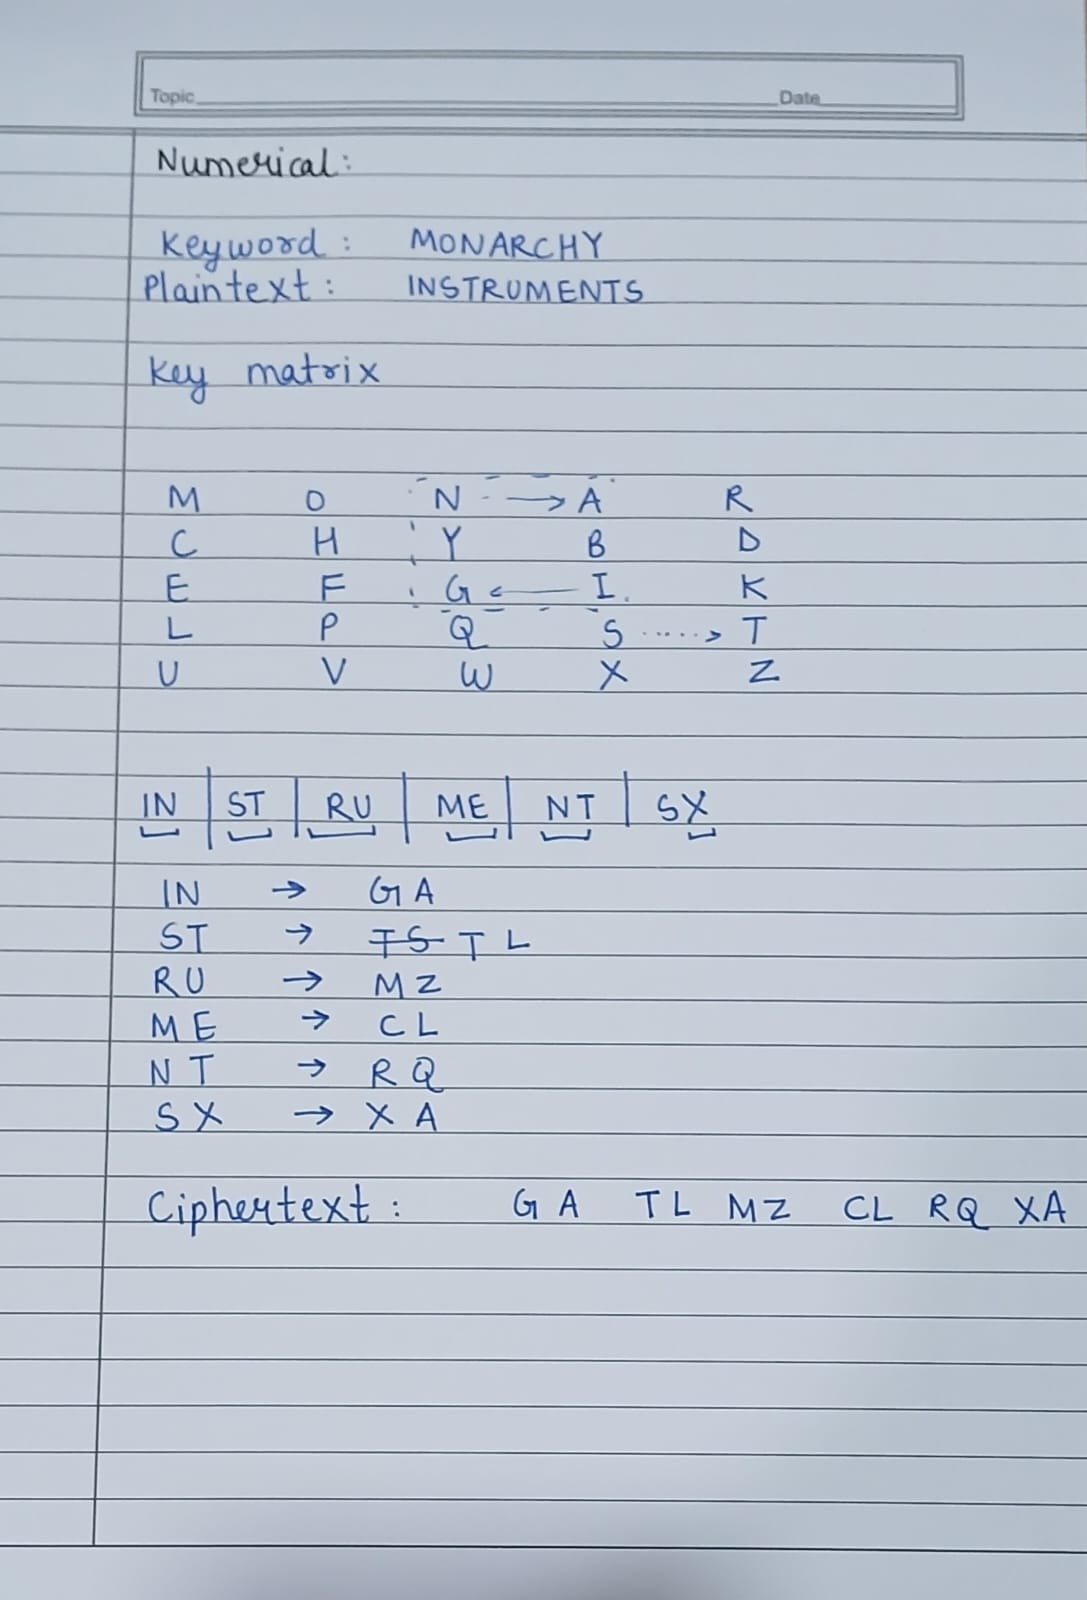 Topic Date
Numerical:
Keyword: MONARCHY
Plaintext: INSTRUMENTS
Key matrix
M O N → A R
C H Y B D
E F G ← I K
L P Q S ·····> T
U V W X Z
IN | ST | RU | ME | NT | SX
IN → GA
ST → ~~TS~~ TL
RU → MZ
ME → CL
NT → RQ
SX → XA
Ciphertext: GA TL MZ CL RQ XA